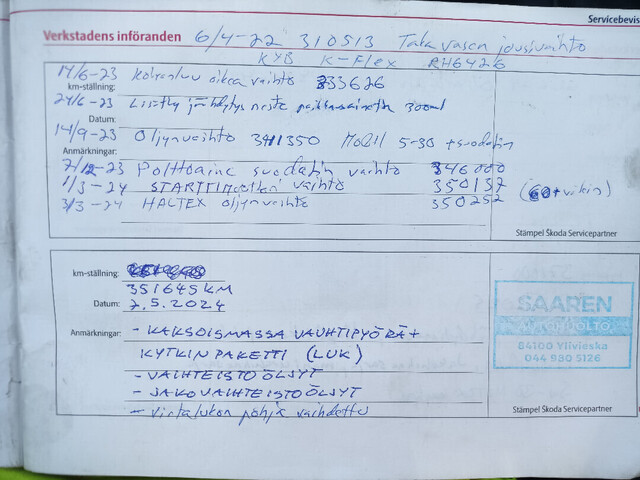 Servicebevis
Verkstadens införanden 6/4-22 310513 Taka vasen jousivaihto
KYB K-Flex RH6426
14/6-23 Koiranluu oikea vaihto 333626
km-ställning:
24/6-23 Lisätty jäähdytys neste 300ml
Datum:
14/9-23 Öljynvaihto 341350 Mobil 5-30 +suodatin
Anmärkningar:
7/12-23 Polttoaine suodatin vaihto 346000
1/3-24 STARTTImoottori vaihto 350157
3/3-24 HALTEX öljynvaihto 350252
Stämpel Škoda Servicepartner
km-ställning:
351645 KM
Datum: 7.5.2024
Anmärkningar: - KAKSOISMASSA VAUHTIPYÖRÄ +
KYTKIN PAKETTI (LUK)
- VAIHTEISTOÖLJYT
- JAKOVAIHTEISTOÖLJYT
- virtalukon pohja vaihdettu
SAAREN
AUTOHUOLTO
84100 Ylivieska
044 980 5126
Stämpel Škoda Servicepartner